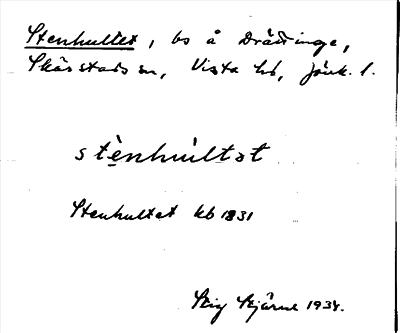 Stenhultet, bs å Drättinge,
Skärstads sn, Vista hd, Jönk. l.
stènhúltət
Stenhultet kb 1831
Stig Stjärne 1934.